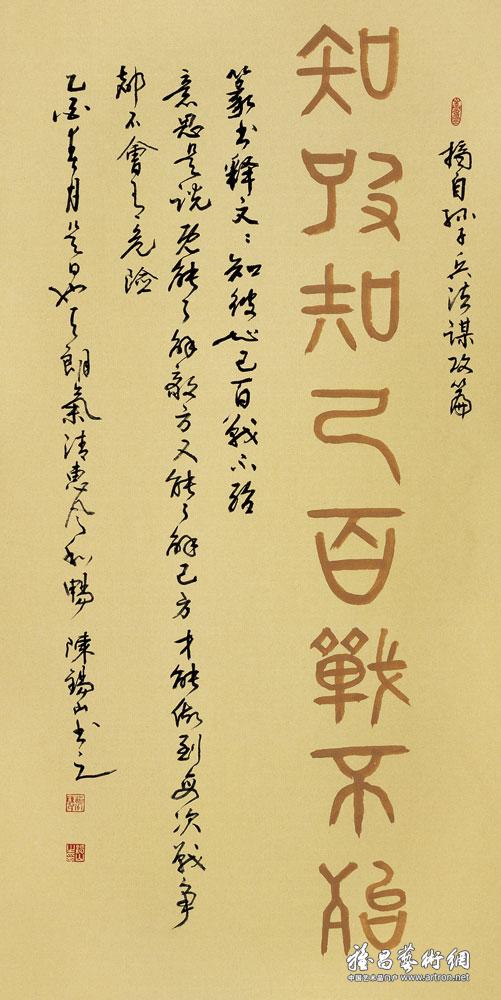 摘自孙子兵法谋攻篇
知彼知己百戰不殆
篆书释文：知彼知己百戰不殆
意思是说既能了解敵方又能了解己方才能做到每次战争
都不會有危險
乙酉春月是日也天朗氣清惠风和畅 陳錫山书之
雅昌藝術網
中国艺术品门户 www.artron.net